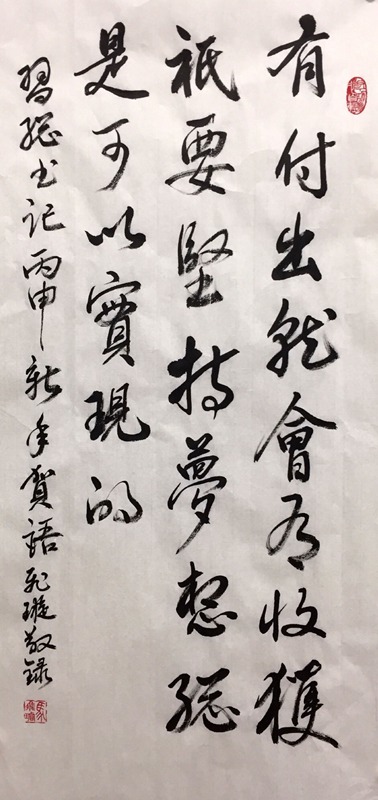 有付出就會有收獲
祇要堅持夢想總
是可以實現的
習總书记丙申新年賀語飛璇敬録